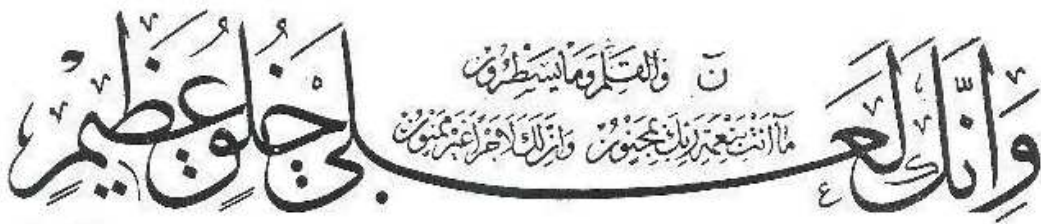 ن وَالْقَلَمِ وَمَا يَسْطُرُونَ
مَا أَنْتَ بِنِعْمَةِ رَبِّكَ بِمَجْنُونٍ وَإِنَّ لَكَ لَأَجْرًا غَيْرَ مَمْنُونٍ
وَإِنَّكَ لَعَلَىٰ خُلُقٍ عَظِيمٍ